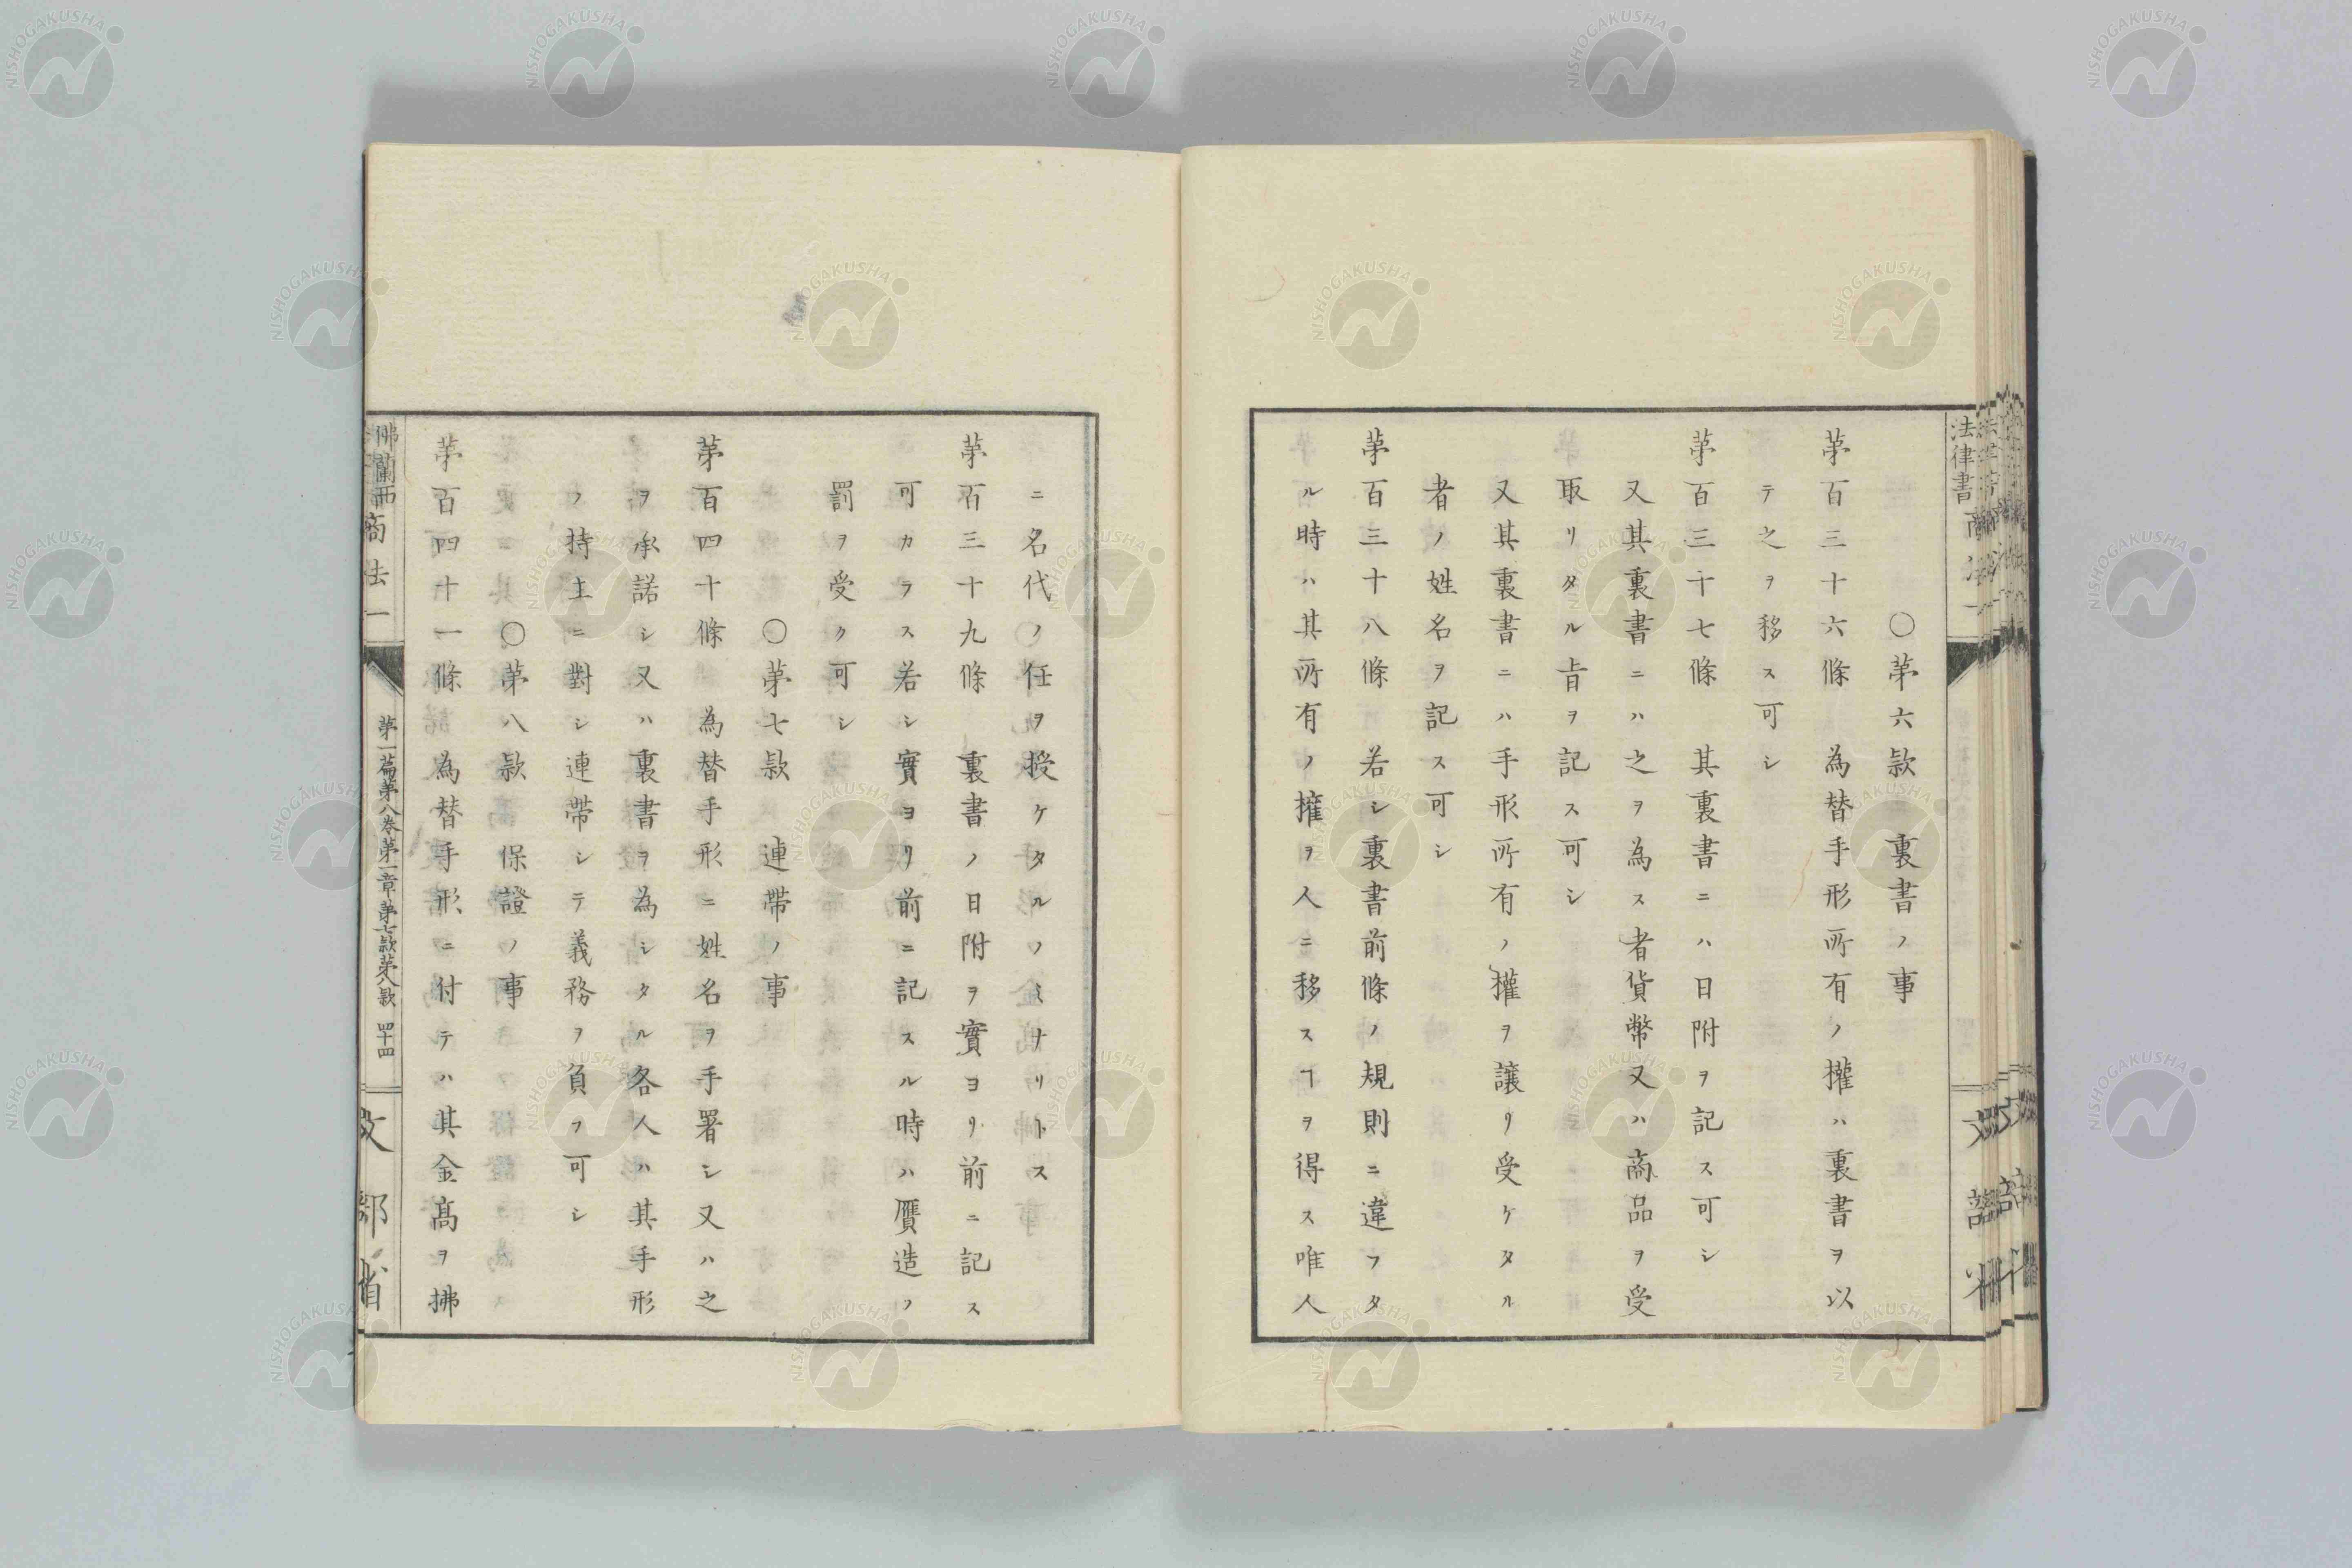 法律書
〇第六款　裏書ノ事
第百三十六條　為替手形所有ノ權ハ裏書ヲ以
テ之ヲ移ス可シ
第百三十七條　其裏書ニハ日附ヲ記ス可シ
又其裏書ニハ之ヲ為ス者貨幣又ハ商品ヲ受
取リタル旨ヲ記ス可シ
又其裏書ニハ手形所有ノ權ヲ讓リ受ケタル
者ノ姓名ヲ記ス可シ
第百三十八條　若シ裏書前條ノ規則ニ違フタ
ル時ハ其所有ノ權ヲ人ニ移スヿヲ得ス唯人
ニ名代ノ任ヲ授ケタルノミナリトス
第百三十九條　裏書ノ日附ヲ實ヨリ前ニ記ス
可カラス若シ實ヨリ前ニ記スル時ハ贋造ノ
罰ヲ受ク可シ
〇第七款　連帶ノ事
第百四十條　為替手形ニ姓名ヲ手署シ又ハ之
ヲ承諾シ又ハ裏書ヲ為シタル各人ハ其手形
ノ持主ニ對シ連帶シテ義務ヲ負フ可シ
〇第八款　保證ノ事
第百四十一條　為替手形ニ付テハ其金高ヲ拂
佛蘭西商法一
第一篇第八巻第一章第七款第八款　四十四
文部省
NISHOGAKUSHA